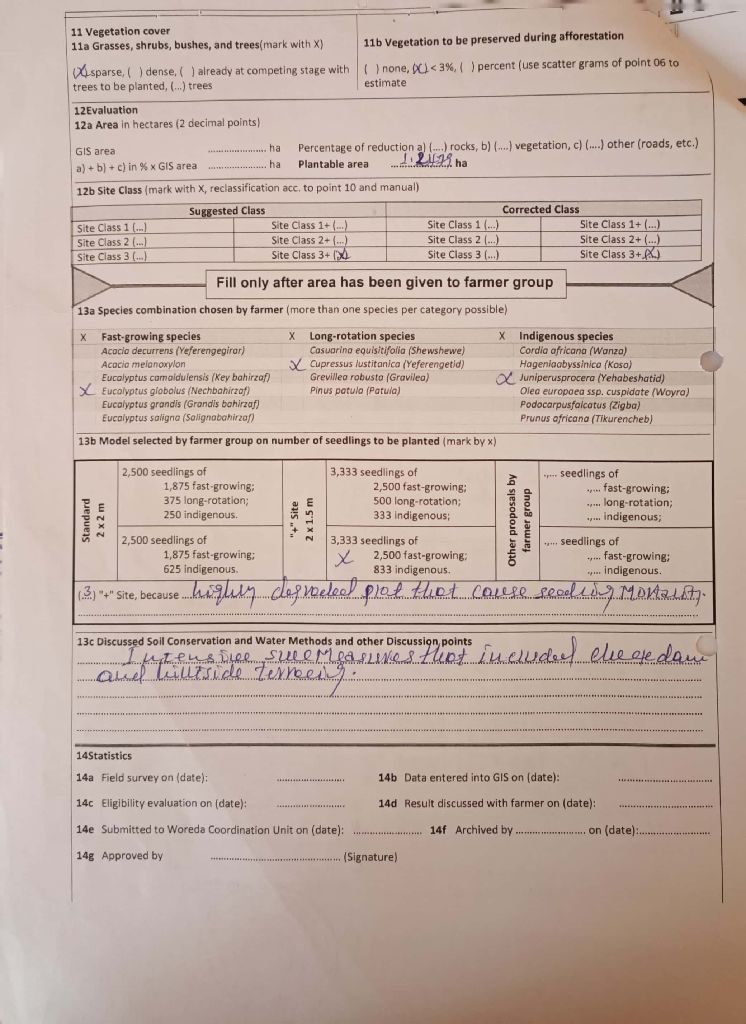 11 Vegetation cover
11a Grasses, shrubs, bushes, and trees(mark with X)
(X) sparse, ( ) dense, ( ) already at competing stage with
trees to be planted, (...) trees
11b Vegetation to be preserved during afforestation
( ) none, (X) < 3%, ( ) percent (use scatter grams of point 06 to
estimate
12Evaluation
12a Area in hectares (2 decimal points)
GIS area .................... ha Percentage of reduction a) (....) rocks, b) (....) vegetation, c) (....) other (roads, etc.)
a) + b) + c) in % x GIS area .................... ha Plantable area 1.2479 ha
12b Site Class (mark with X, reclassification acc. to point 10 and manual)
Suggested Class Corrected Class
Site Class 1 (...) Site Class 1+ (...) Site Class 1 (...) Site Class 1+ (...)
Site Class 2 (...) Site Class 2+ (...) Site Class 2 (...) Site Class 2+ (...)
Site Class 3 (...) Site Class 3+ (X) Site Class 3 (...) Site Class 3+ (X)
Fill only after area has been given to farmer group
13a Species combination chosen by farmer (more than one species per category possible)
X Fast-growing species X Long-rotation species X Indigenous species
Acacia decurrens (Yeferengegirar) Casuarina equisitifolia (Shewshewe) Cordia africana (Wanza)
Acacia melanoxylon X Cupressus lustitanica (Yeferengetid) Hageniaabyssinica (Koso)
Eucalyptus camaldulensis (Key bahirzaf) Grevillea robusta (Gravilea) X Juniperusprocera (Yehabeshatid)
X Eucalyptus globolus (Nechbahirzaf) Pinus patula (Patula) Olea europaea ssp. cuspidate (Woyra)
Eucalyptus grandis (Grandis bahirzaf) Podocarpusfalcatus (Zigba)
Eucalyptus saligna (Salignabahirzaf) Prunus africana (Tikurencheb)
13b Model selected by farmer group on number of seedlings to be planted (mark by x)
Standard
2 x 2 m
2,500 seedlings of
1,875 fast-growing;
375 long-rotation;
250 indigenous.
2,500 seedlings of
1,875 fast-growing;
625 indigenous.
"+" Site
2 x 1.5 m
3,333 seedlings of
2,500 fast-growing;
500 long-rotation;
333 indigenous;
3,333 seedlings of
X 2,500 fast-growing;
833 indigenous.
Other proposals by
farmer group
.,... seedlings of
.,... fast-growing;
.,... long-rotation;
.,... indigenous;
.,... seedlings of
.,... fast-growing;
.,... indigenous.
(.3.) "+" Site, because highly degraded plot that cause seedling Mortality.
13c Discussed Soil Conservation and Water Methods and other Discussion points
Intensive swc Measures that included checkdam
and hilltside terracing.
14Statistics
14a Field survey on (date): .................... 14b Data entered into GIS on (date): ....................
14c Eligibility evaluation on (date): .................... 14d Result discussed with farmer on (date): ....................
14e Submitted to Woreda Coordination Unit on (date): .................... 14f Archived by .................... on (date):....................
14g Approved by .................... (Signature)